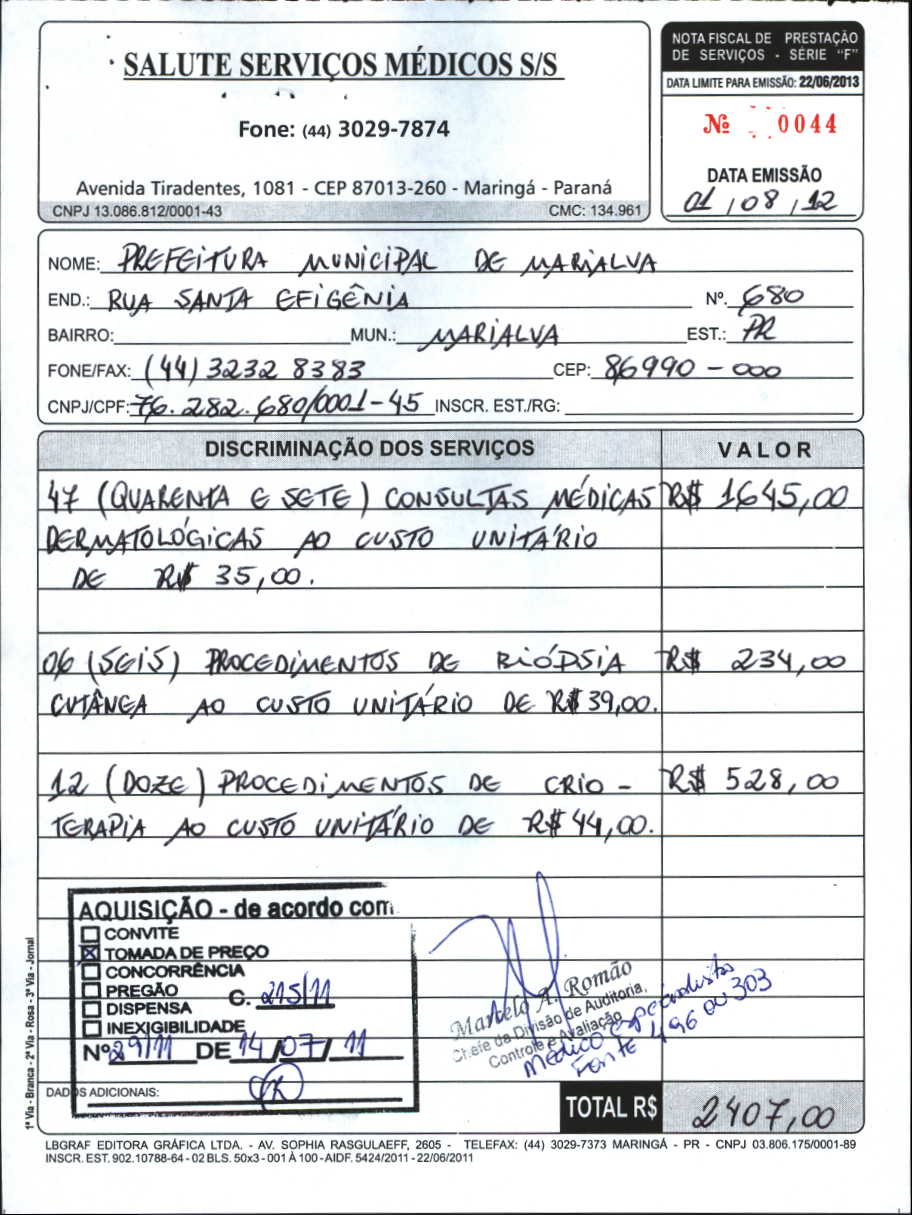 SALUTE SERVIÇOS MÉDICOS S/S
Fone: (44) 3029-7874
Avenida Tiradentes, 1081 - CEP 87013-260 - Maringá - Paraná
CNPJ 13.086.812/0001-43 CMC: 134.961
NOTA FISCAL DE PRESTAÇÃO
DE SERVIÇOS - SÉRIE "F"
DATA LIMITE PARA EMISSÃO: 22/06/2013
Nº 0044
DATA EMISSÃO
01/08/12
NOME: PREFEITURA MUNICIPAL DE MARIALVA
END.: RUA SANTA EFIGÊNIA Nº. 680
BAIRRO: MUN.: MARIALVA EST.: PR
FONE/FAX: (44) 3232 8383 CEP: 86990-000
CNPJ/CPF: 76.282.680/0001-45 INSCR. EST./RG:
DISCRIMINAÇÃO DOS SERVIÇOS VALOR
47 (QUARENTA E SETE) CONSULTAS MÉDICAS R$ 1645,00
DERMATOLÓGICAS AO CUSTO UNITÁRIO
DE R$ 35,00.
06 (SEIS) PROCEDIMENTOS DE BIÓPSIA R$ 234,00
CUTÂNEA AO CUSTO UNITÁRIO DE R$ 39,00.
12 (DOZE) PROCEDIMENTOS DE CRIO- R$ 528,00
TERAPIA AO CUSTO UNITÁRIO DE R$ 44,00.
AQUISIÇÃO - de acordo com
CONVITE
TOMADA DE PREÇO
CONCORRÊNCIA
PREGÃO C. 215/11
DISPENSA
INEXIGIBILIDADE
Nº 29/11 DE 14/07/11
Marcelo A. Romão
Chefe da Divisão de Auditoria,
Controle e Avaliação
Médico especialista
Fonte 496 00 303
DADOS ADICIONAIS:
TOTAL R$ 2407,00
1ª Via - Branca - 2ª Via - Rosa - 3ª Via - Jornal
LBGRAF EDITORA GRÁFICA LTDA. - AV. SOPHIA RASGULAEFF, 2605 - TELEFAX: (44) 3029-7373 MARINGÁ - PR - CNPJ 03.806.175/0001-89
INSCR. EST. 902.10788-64 - 02 BLS. 50x3 - 001 À 100 - AIDF. 5424/2011 - 22/06/2011